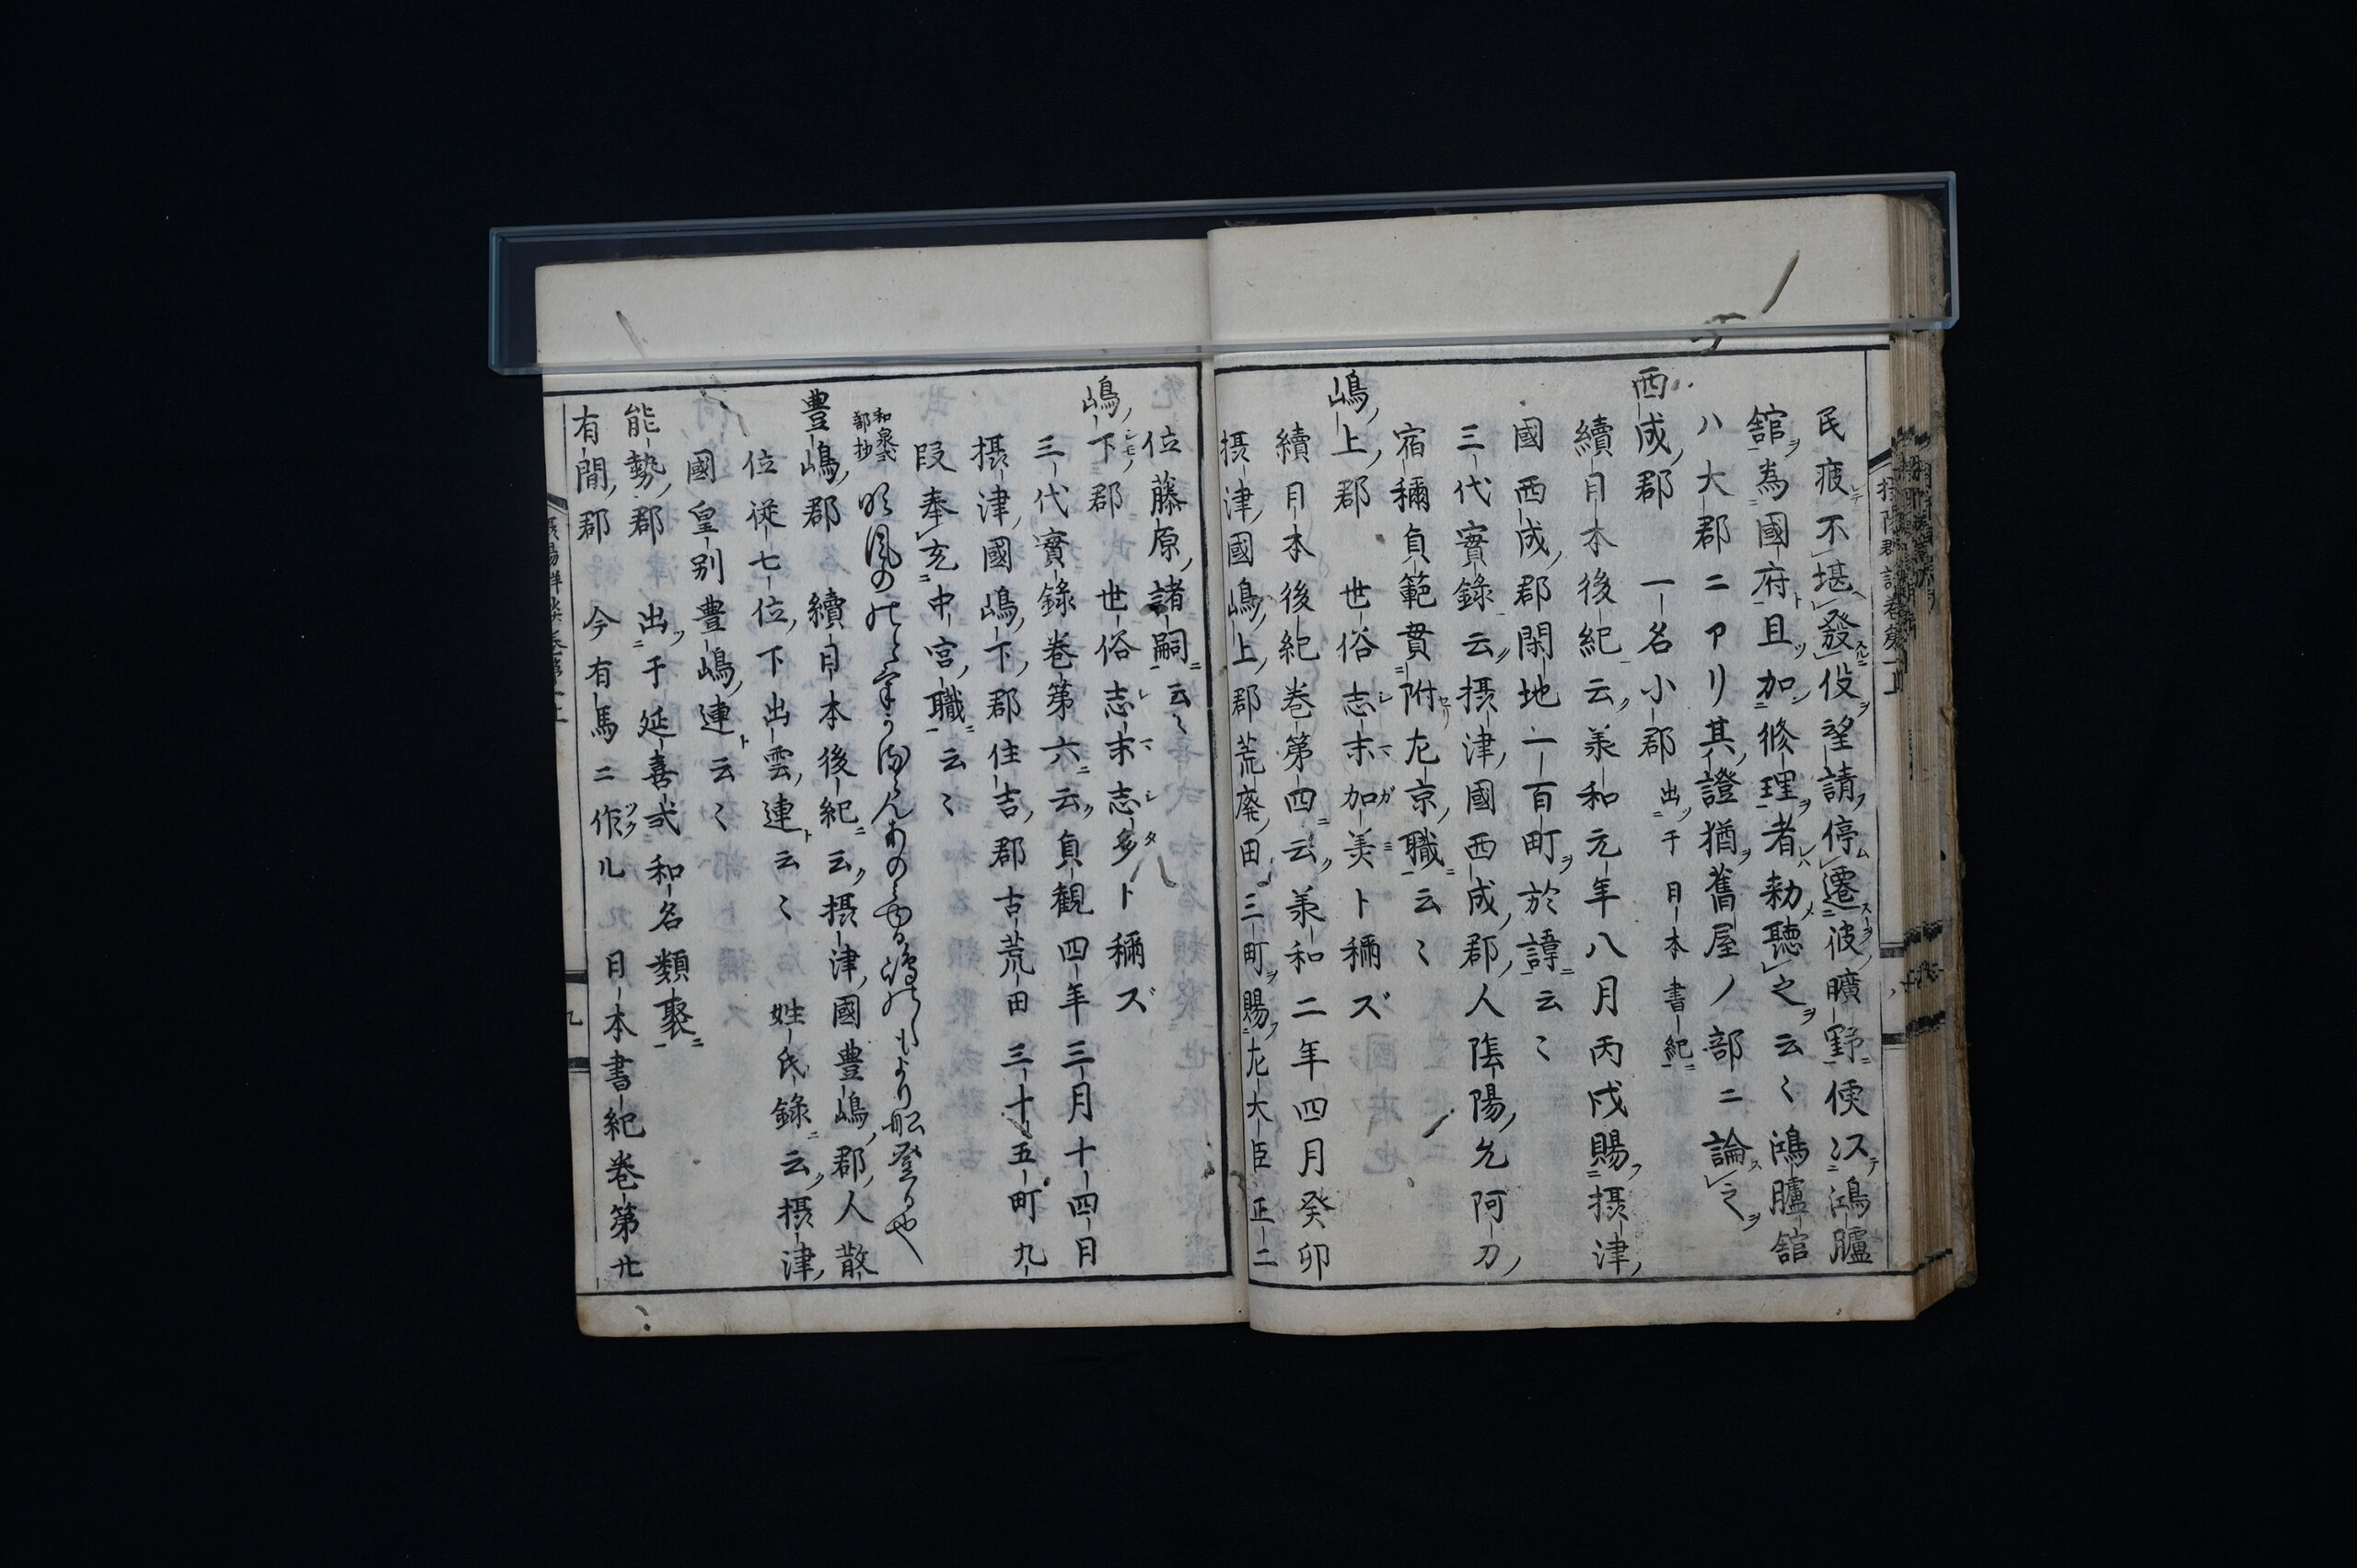 民疲不堪發伇望請停遷彼曠野便以鴻臚
舘為國府且加修理者勑聽之云〻鴻臚舘
ハ大郡ニアリ其證猶舊屋ノ部ニ論之
西成郡 一名小郡 出于日本書紀
續日本後紀云羕和元年八月丙戌賜摂津
國西成郡閑地一百町於諱云〻
三代實錄云摂津國西成郡人隂陽允阿刀
宿禰負範貫附左京職云〻
嶋上郡 世俗志末加美ト稱ズ
續日本後紀巻第四云羕和二年四月癸卯
摂津國嶋上郡荒廢田三町賜左大臣正二
位藤原諸嗣云〻
嶋下郡 世俗志末志多ト稱ズ
三代實錄巻第六云負観四年三月十四日
摂津國嶋下郡住吉郡古荒田三十五町九
段奉充中宮職云〻
和泉式部抄
豊嶋郡 續日本後紀云摂津國豊嶋郡人散
位従七位下出雲連云〻 姓氏錄云摂津
國皇別豊嶋連云〻
能勢郡 出于延喜式和名類聚
有間郡 今有馬ニ作ル 日本書紀巻第廿